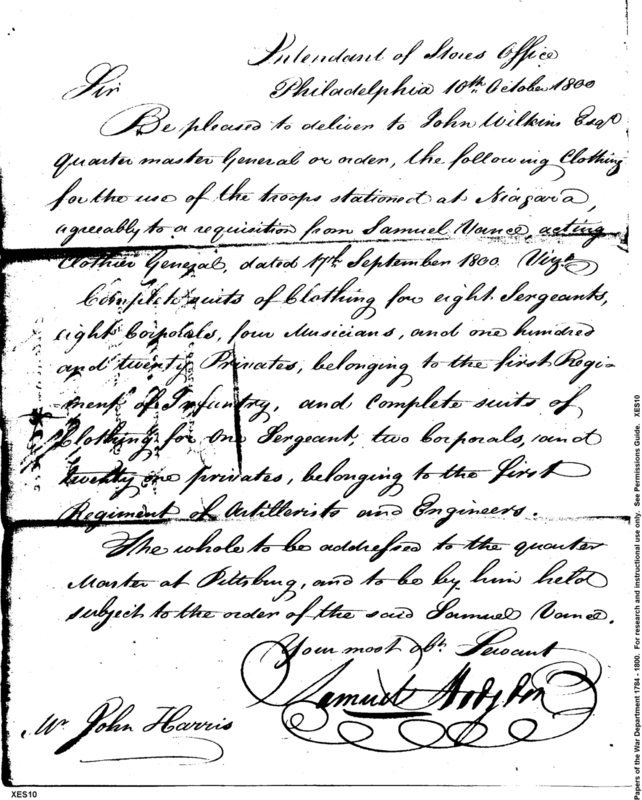 Intendant of Stores Office
Philadelphia 10th October 1800
Sir
Be pleased to deliver to John Wilkins Esqr
quarter master General or order, the following Clothing
for the use of the troops stationed at Niagara,
agreeably to a requisition from Samuel Vance, acting
Clothier General, dated 17th September 1800. Vizt
Complete suits of Clothing for eight Sergeants,
eight Corporals, four Musicians, and one hundred
and twenty Privates, belonging to the first Regi-
ment of Infantry, and complete suits of
Clothing for One Sergeant, two Corporals, and
twenty one privates, belonging to the first
Regiment of Artillerists and Engineers.
The whole to be addressed to the quarter
Master at Pittsburg, and to be by him held
subject to the order of the said Samuel Vance.
Your most obt Servant
Samuel Hodgdon
Mr John Harris
XES10
Papers of the War Department 1784 - 1800. For research and instructional use only. See Permissions Guide. XES10